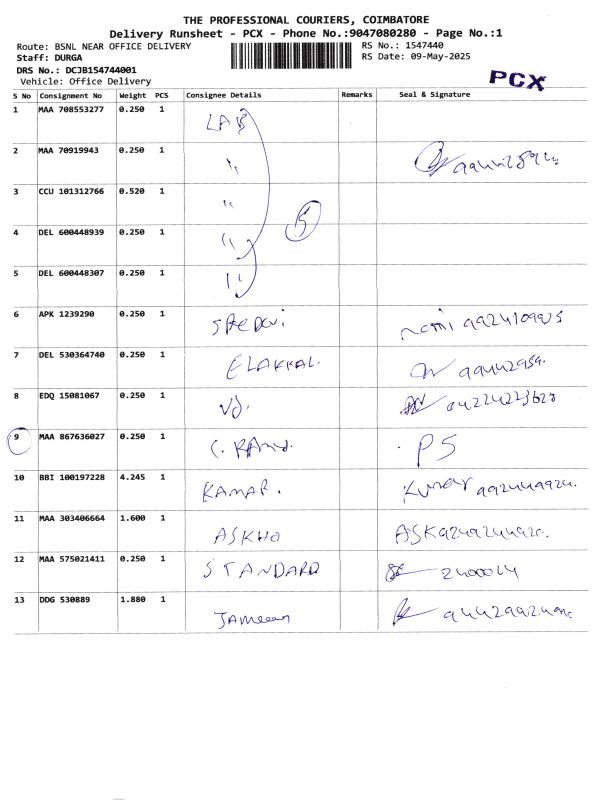 THE PROFESSIONAL COURIERS, COIMBATORE
Delivery Runsheet - PCX - Phone No.:9047080280 - Page No.:1
Route: BSNL NEAR OFFICE DELIVERY RS No.: 1547440
Staff: DURGA RS Date: 09-May-2025
DRS No.: DCJB154744001
Vehicle: Office Delivery PCX
S No Consignment No Weight PCS Consignee Details Remarks Seal & Signature
1 MAA 708553277 0.250 1 LAB
2 MAA 70919943 0.250 1 "
3 CCU 101312766 0.520 1 "
4 DEL 600448939 0.250 1 " 5
5 DEL 600448307 0.250 1 "
6 APK 1239290 0.250 1
7 DEL 530364740 0.250 1 ELAKKAL.
8 EDQ 15081067 0.250 1
9 MAA 867636027 0.250 1 PS
10 BBI 100197228 4.245 1 KAMAR. Kumar
11 MAA 303406664 1.600 1 ASKHO
12 MAA 575021411 0.250 1 STANDARD
13 DDG 530889 1.880 1